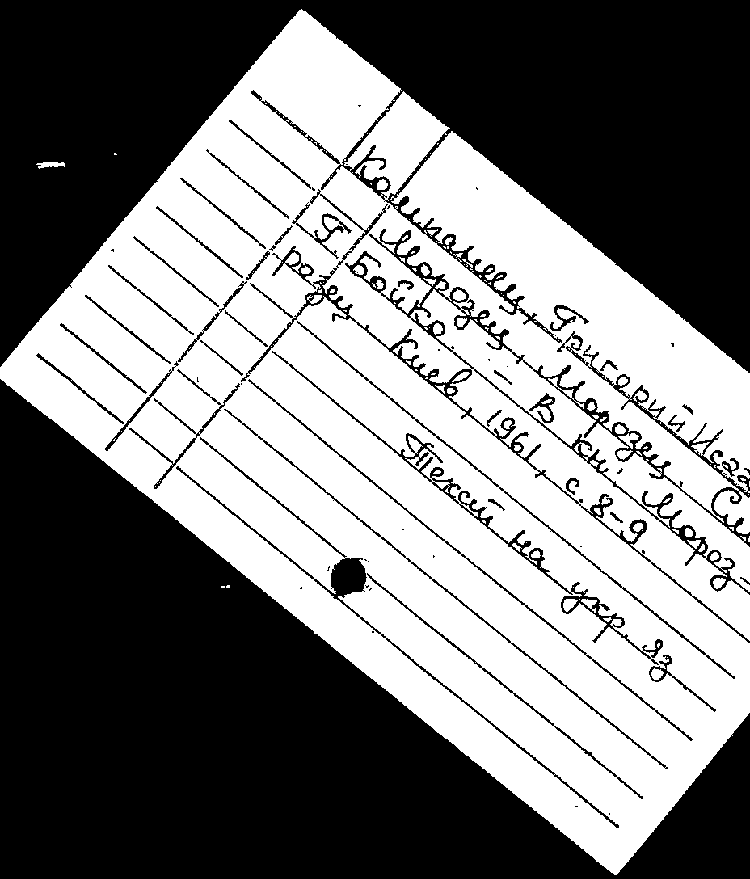 Компанеец, Григорий Исаа
Морозец, Морозец. Сл
Г. Бойко. – В кн: Мороз-
розец. Киев, 1961, с. 8-9.
Текст на укр. яз